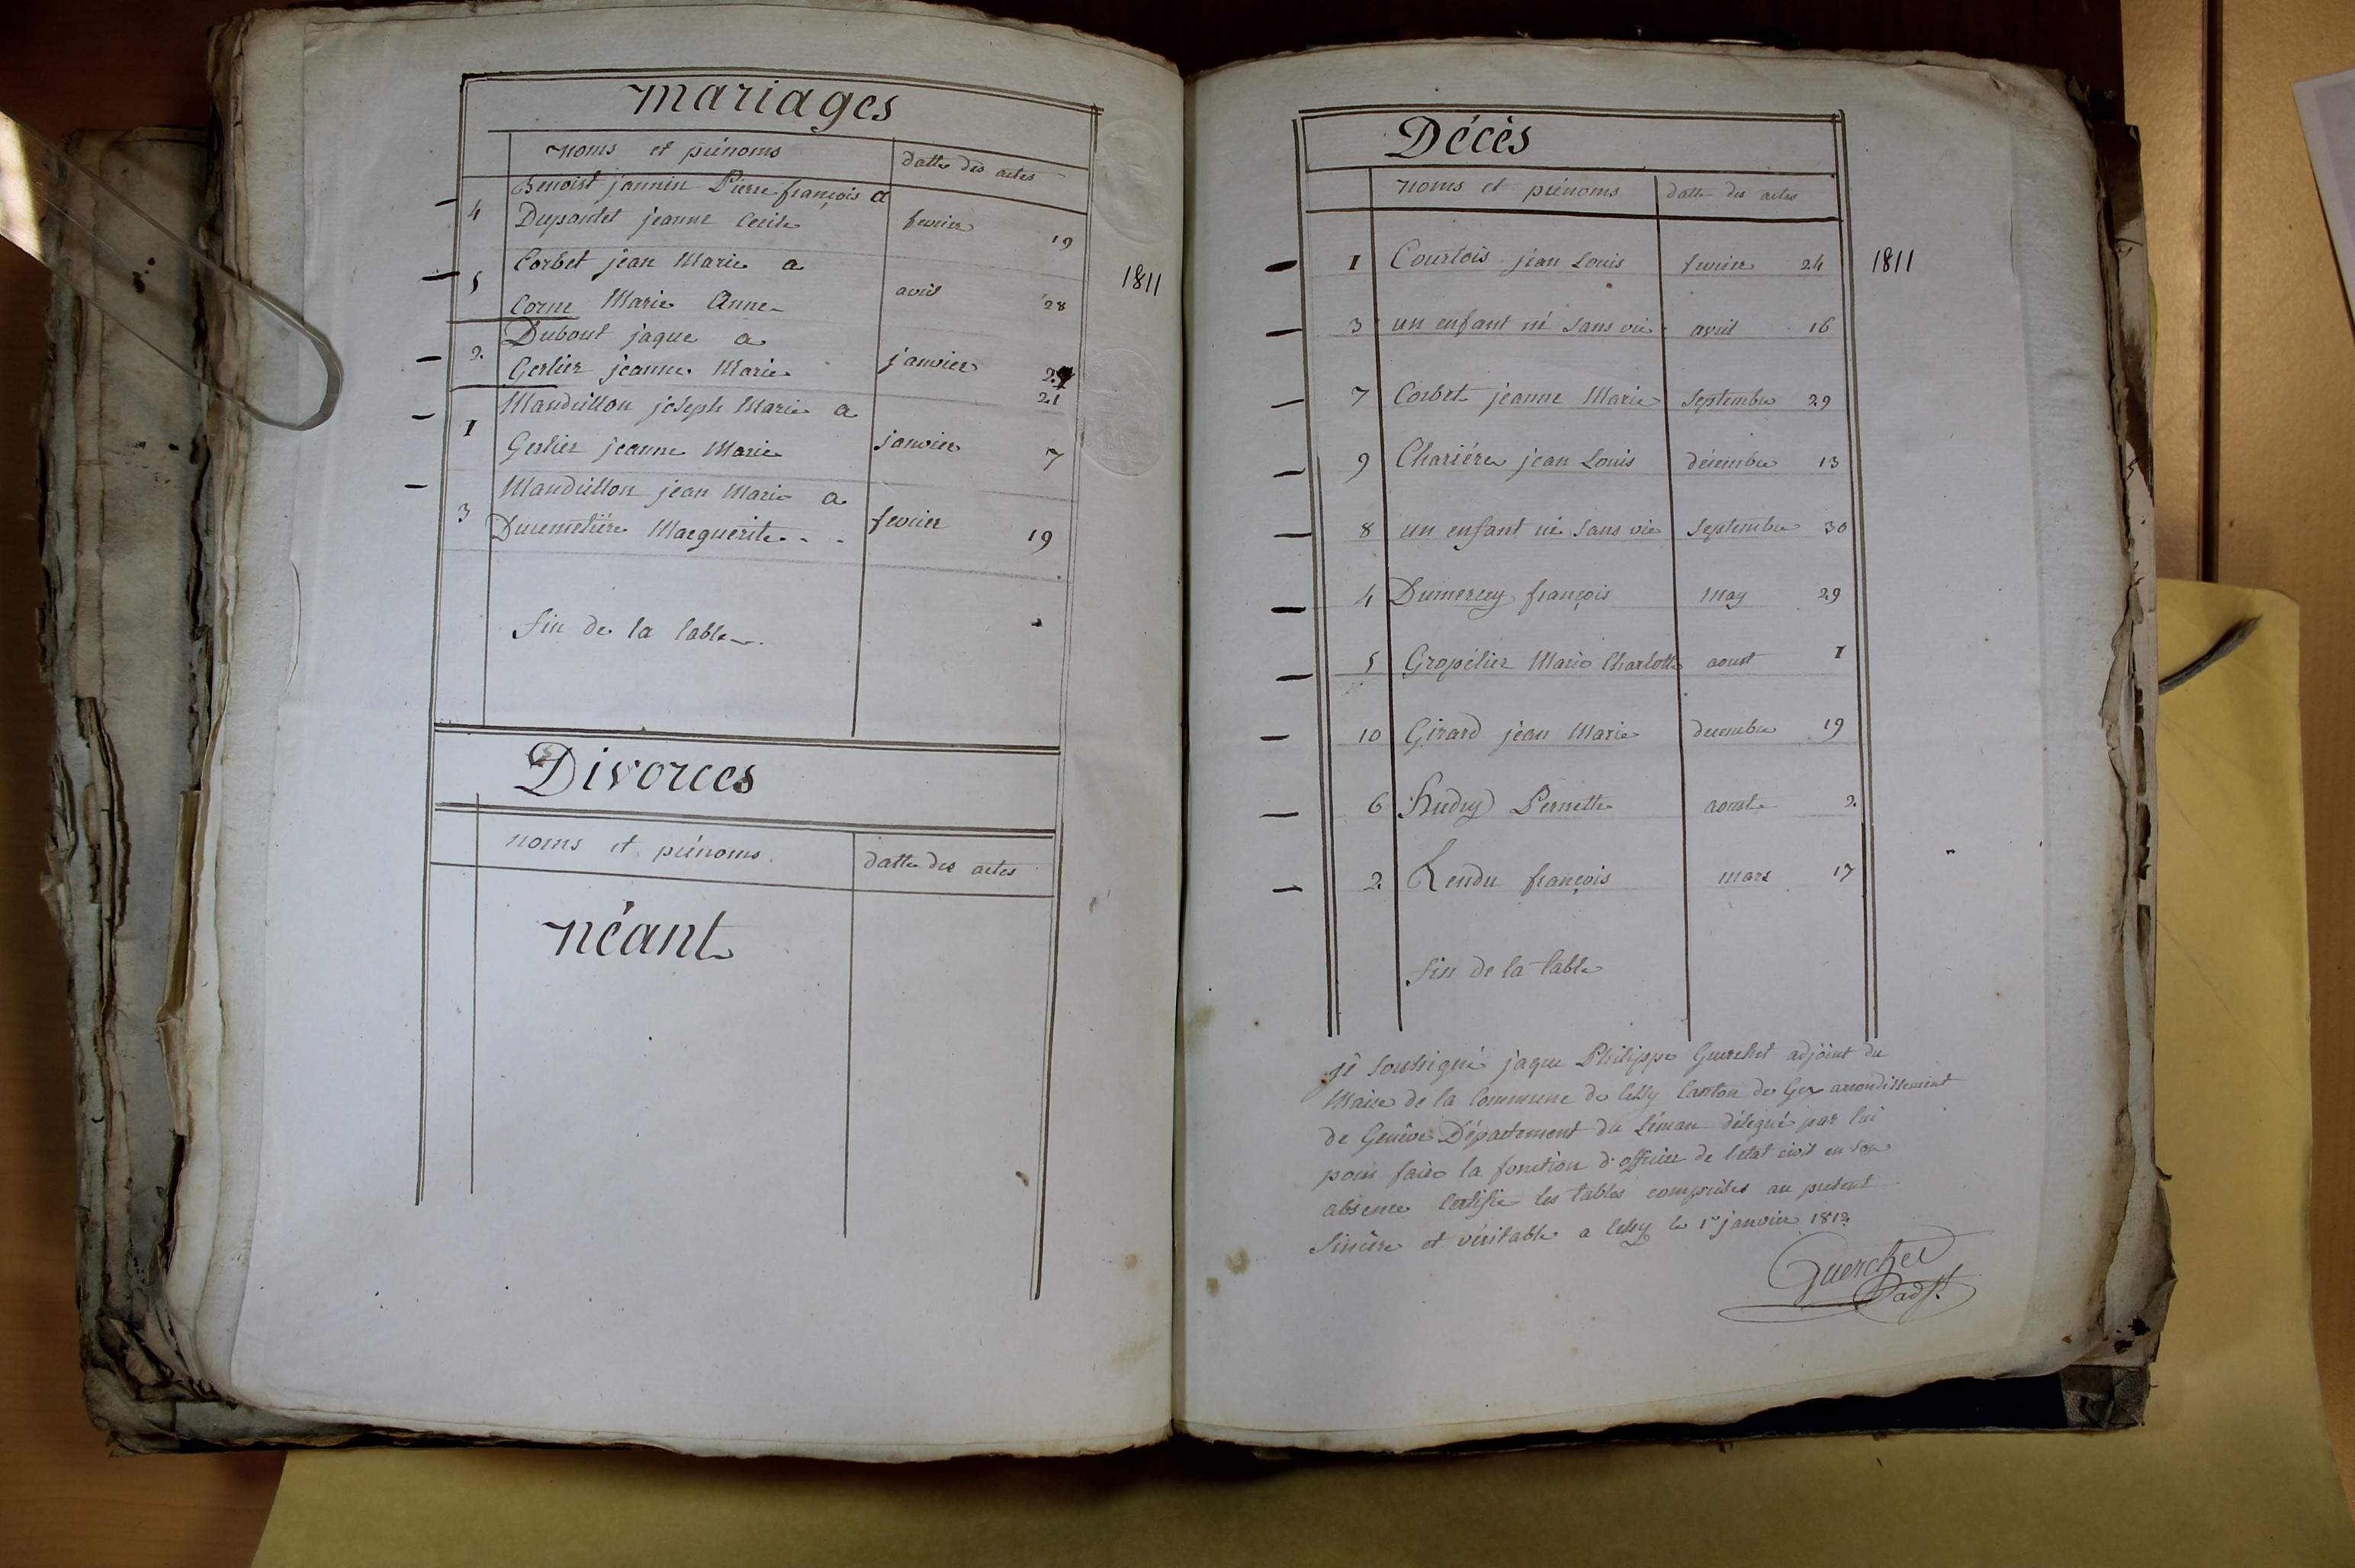 Mariages
noms et prénoms datte des actes
Benoist jannin Pierre françois a
4 Dupontet jeanne Cecile fevrier 19
Corbet jean Marie a
5 Corne Marie Anne avril 28
1811
Dubout jaque a
2 Gerlier jeanne Marie janvier
21
Mandrillon joseph Marie a
1 Gerlier jeanne Marie janvier 7
Mandrillon jean Marie a
3 Ducimetière Marguerite fevrier 19
fin de la table
Divorces
noms et prénoms datte des actes
néant
Décès
noms et prénoms datte des actes
1 Courtois jean Louis fevrier 24 1811
3 un enfant né sans vie avril 16
7 Corbet jeanne Marie Septembre 29
9 Chariére jean Louis décembre 13
8 un enfant né sans vie Septembre 30
4 Dumerey françois may 29
5 Gropélier Marie Charlotte aoust 1
10 Girard jean Marie decembre 19
6 Hudry Pernette aoust 2
2 Rendu françois mars 17
fin de la table
je soussigné jaque Philippe Guerchet adjoint du
Maire de la Commune de Cessy Canton de Gex arrondissement
de Genève Département du Léman délégué par lui
pour faire la fonction d'officier de letat civil en son
absence Certifie les tables comprises au présent
Sincère et véritable a Cessy le 1er janvier 1812
Guerchet
adjt.